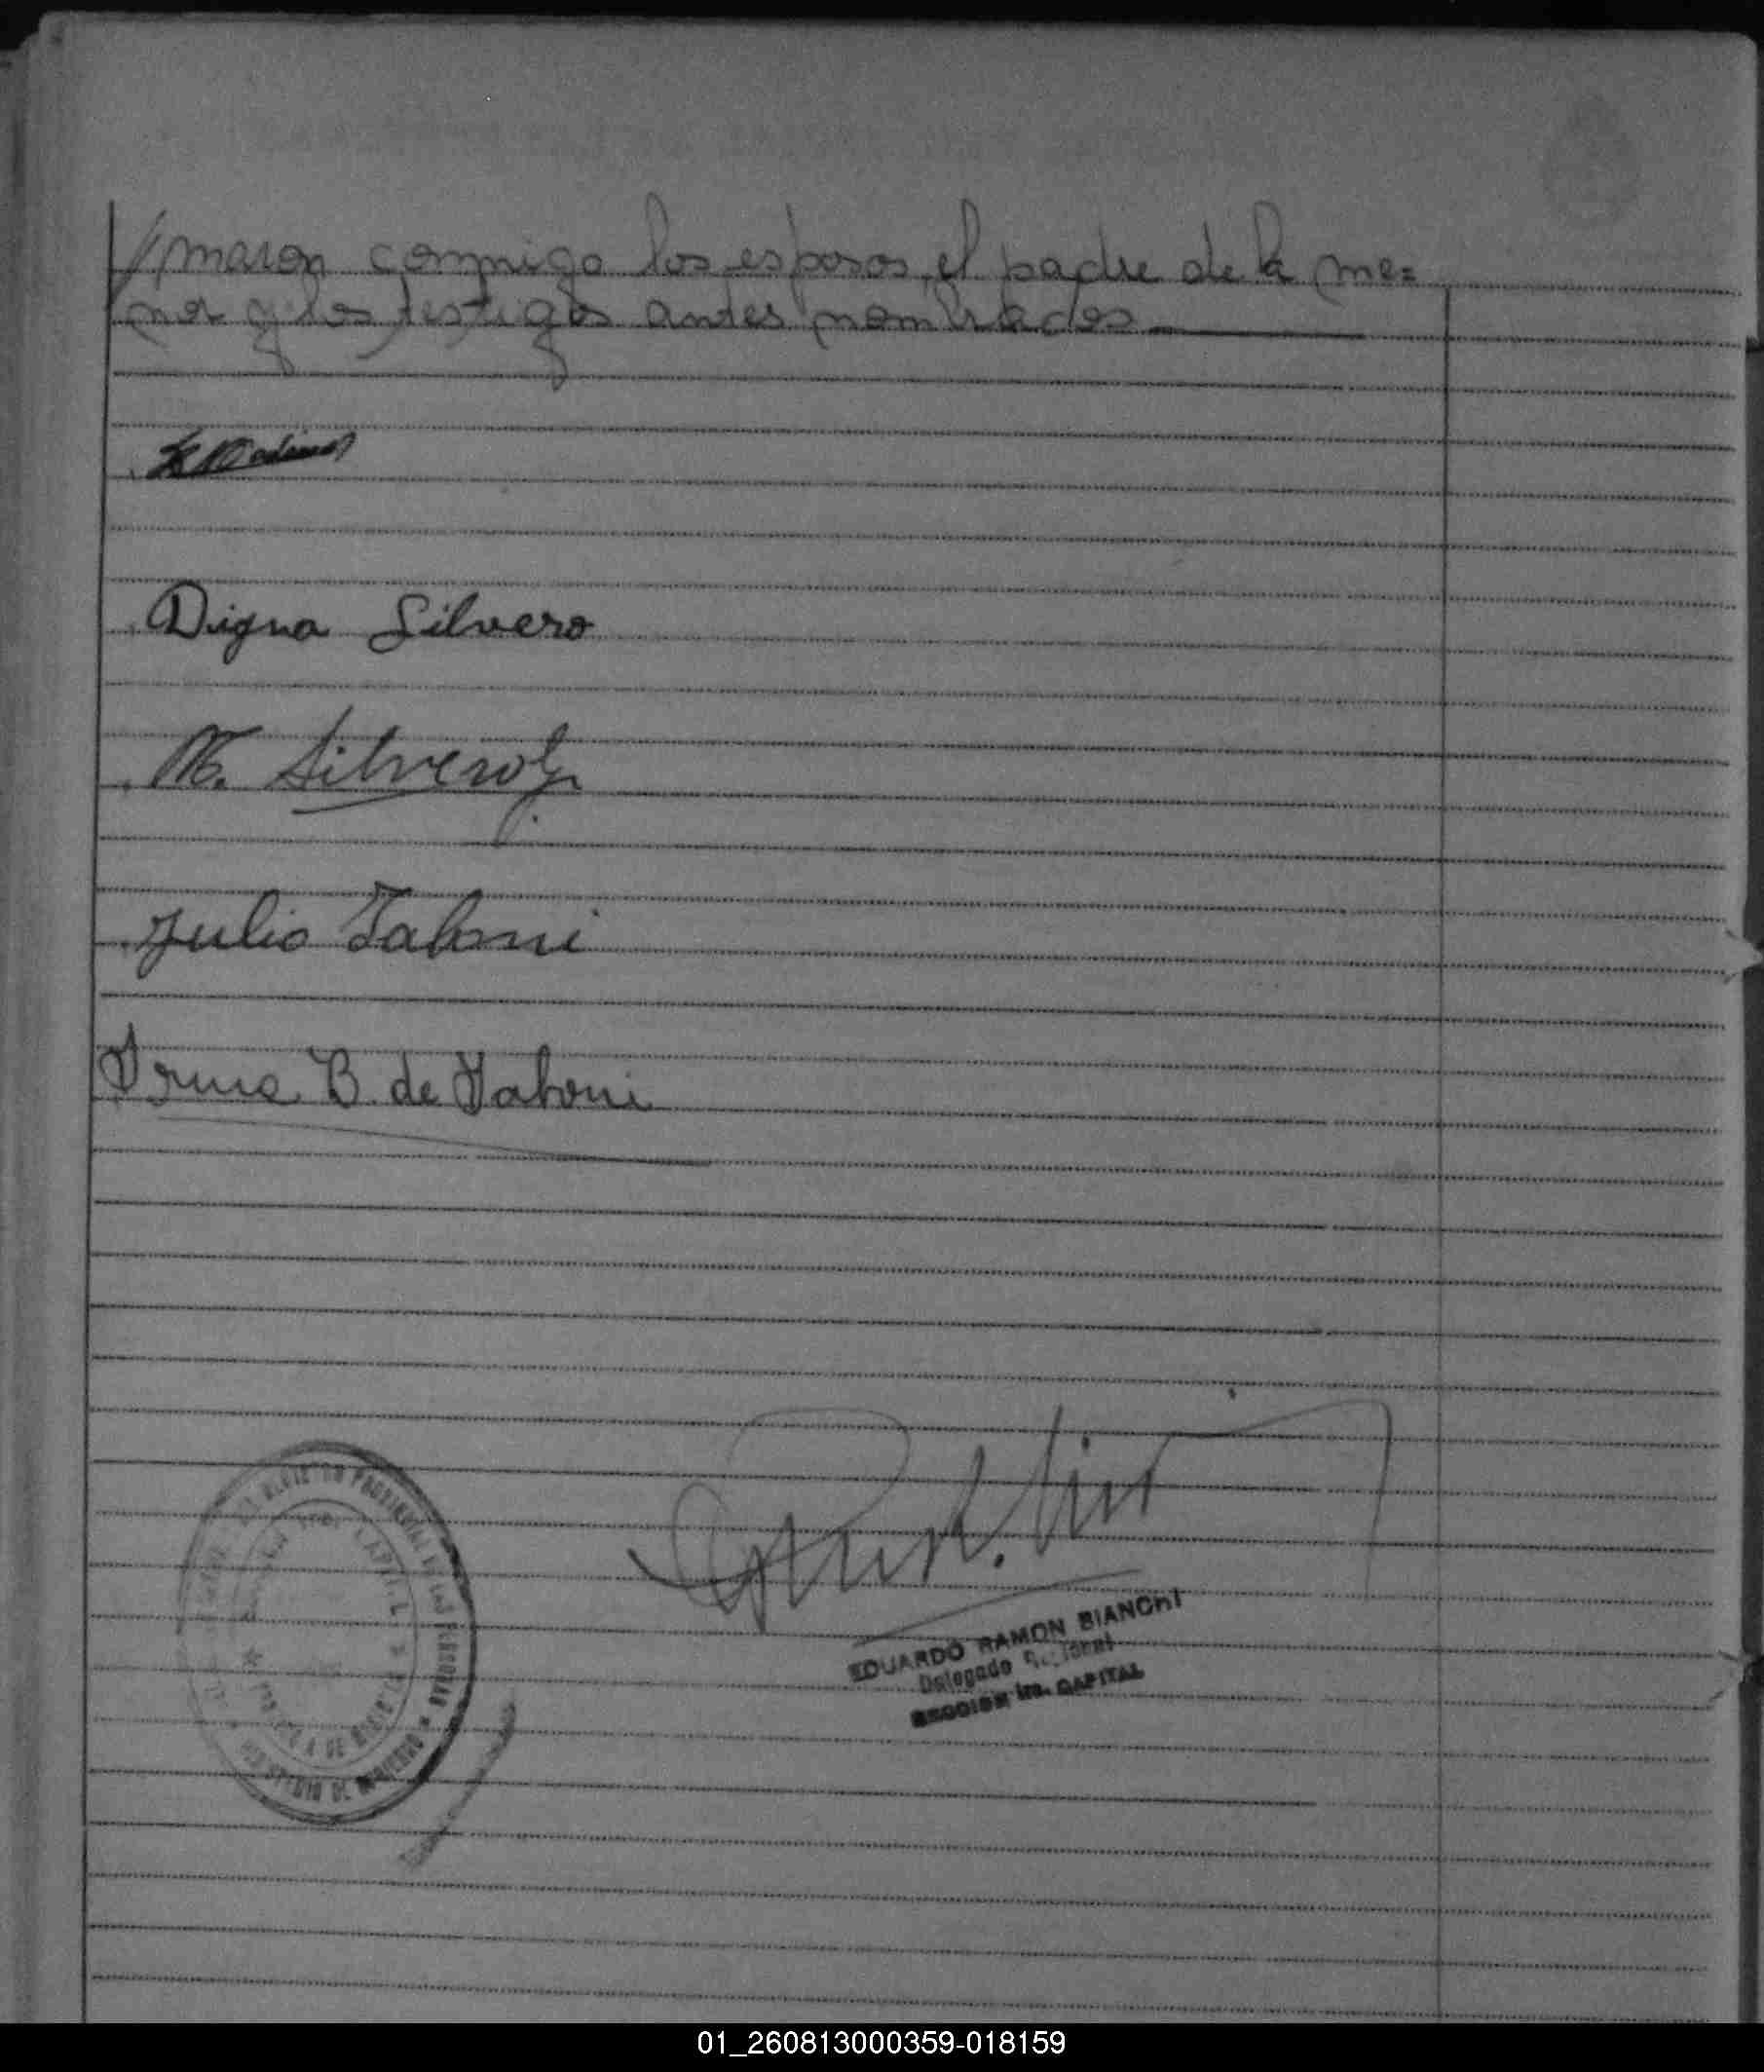 //maron conmigo los esposos, el padre de la me=
nor y los testigos antes nombrados
Digna Silvero
M. Silvero
Julio Taboni
Irma B. de Taboni
PROVINCIAL DE LAS PERSONAS * MINISTERIO DE GOBIERNO *
EDUARDO RAMON BIANCHI
Delegado
SECCION 1ra. CAPITAL
01_260813000359-018159